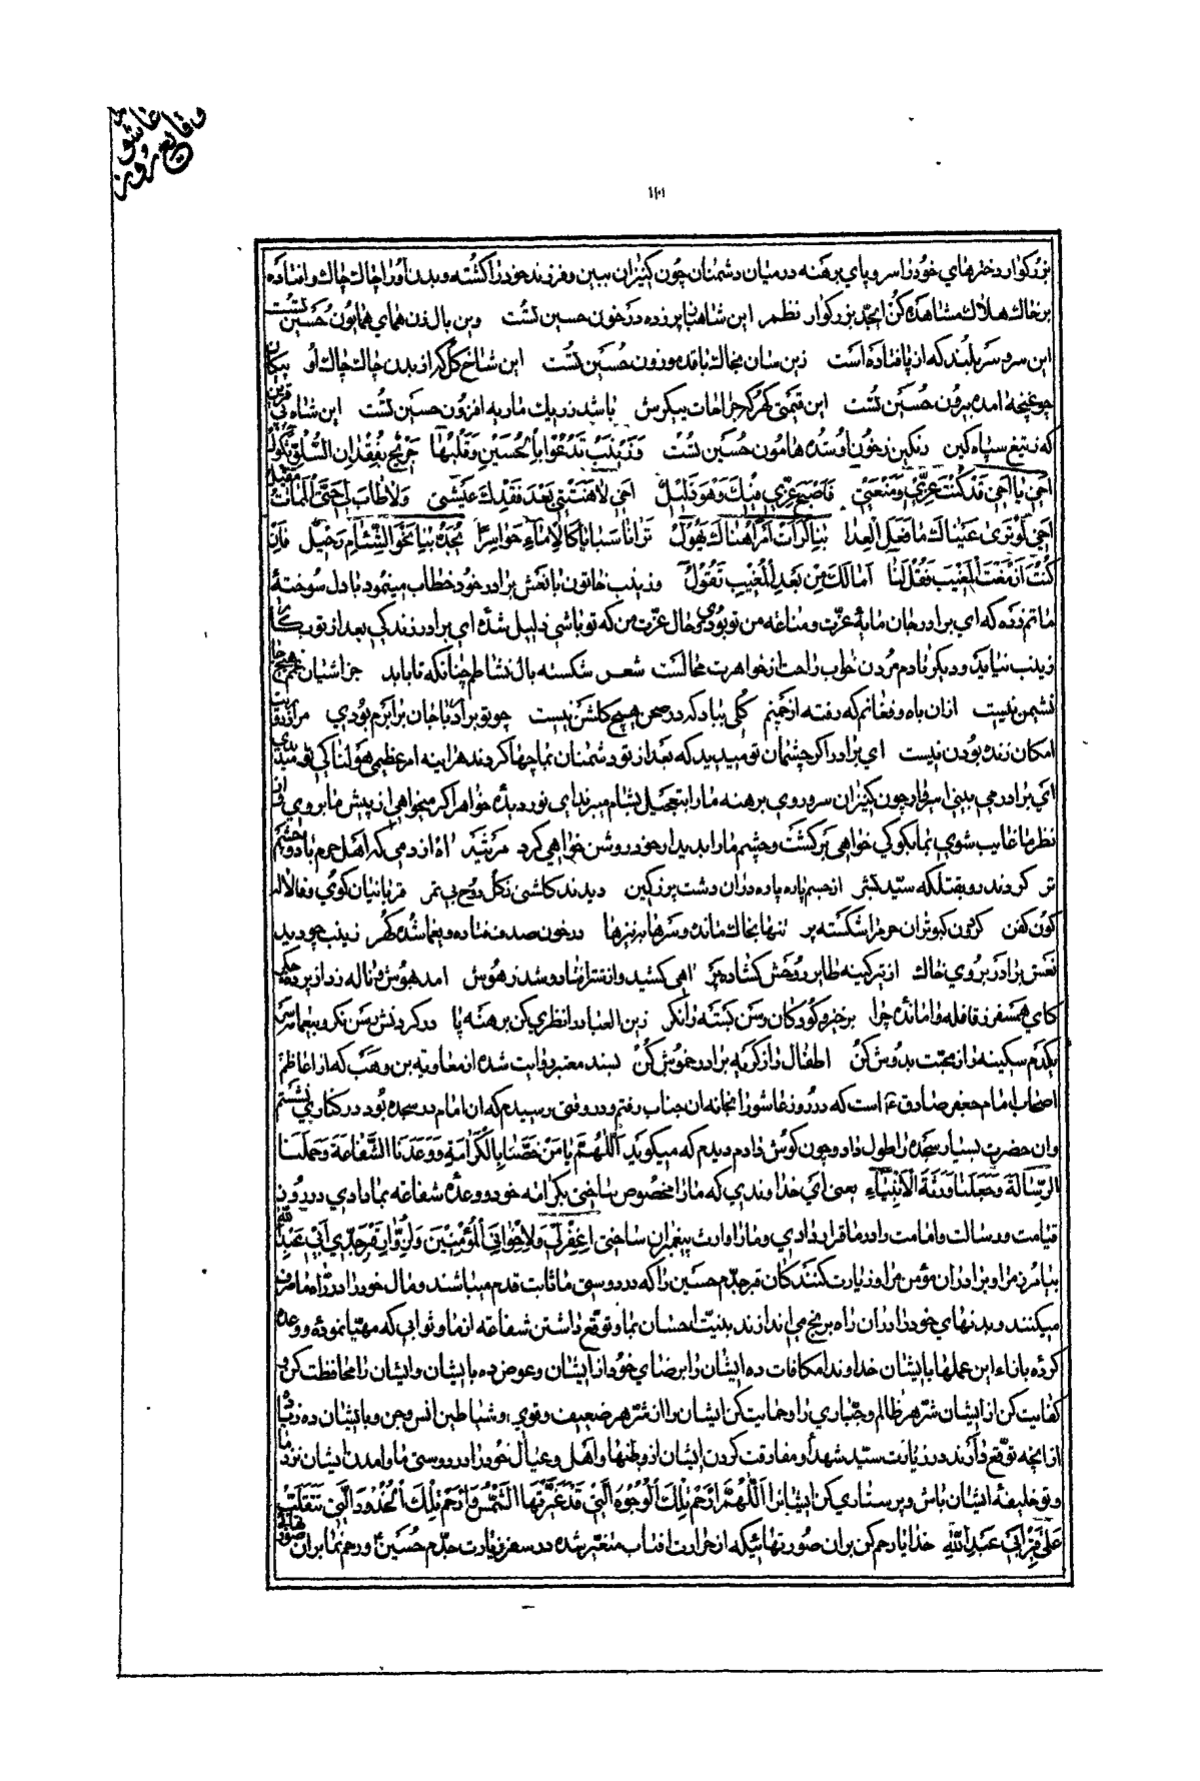 وقایع روز عاشورا
بزرگوار دخترهاي خود را سر و پاي برهنه در میان دشمنان چون کنیزان ببین و فرزند خود را کشته و بدن او را چاك چاك و افتاده
بر خاك هلاك مشاهده کن ایجد بزرکوار نظم این شاهباز پر زده در خون حسین تست وین بال زن هماي همایون حسین تست
این سرو سر بلند که از پا فتاده است زین سان بخاك با قد موزون حسین تست این شاخ گل که از بدن چاك چاك او پیکان
چو غنچه امده بیرون حسین تست این قیمتی کهر که جراحات پیکرش باشد ز ریك ماریه افزون حسین تست این شاه بی قرین
که ز تیغ سپاه کین رنکین ز خون او شده هامون حسین تست وَزَیْنَبُ تَدْعُوْا بِالْحُسَیْنِ وَقَلْبُهَا جَرِیْحٌ بِفُقْدَانِ السُّلُوِّ ثَکُوْلُ
اَخِیْ یَا اَخِیْ قَدْ کُنْتَ عِزِّیْ وَمَنْعَتِیْ فَاَصْبَحَ عِزِّیْ فِیْكَ وَهُوَ ذَلِیْلٌ اَخِیْ لَا هَنَتْنِیْ بَعْدَ فَقْدِكَ عِیْشَتِیْ وَلَا طَابَ لِیْ حَتَّی الْمَمَاتِ مَقِیْلٌ
اَخِیْ لَوْ تَرَیٰ عَیْنَاكَ مَا فَعَلَ الْعِدَا بِنَا لَرَأَتْ اَمْرًا هُنَاكَ یَهُوْلُ تَرَانَا سَبَایَا کَالْاِمَاءِ حَوَاسِرًا یُجَدُّ بِنَا نَحْوَ الشَّئَامِ رَحِیْلٌ فَاِنْ
کُنْتَ اَزْمَعْتَ الْمَغِیْبَ فَقُلْ لَنَا اَمَا لَكَ مِنْ بَعْدِ الْمَغِیْبِ تَقُوْلُ وزینب خاتون با نعش برادر خود خطاب مینمود با دل سوخته
ماتم زده که اي برادر جان مایۀ عزّت و مناعه من تو بودي و حال عزت من که تو باشي ذلیل شده اي برادر زندکي بعد از تو بکار
زینب نیاید و دیکر تا دم مردن خواب راحت از خواهرت محالست شعر شکسته بال نشاطم چنانکه تا باید جز اشیان غمم هیچ جا
نشیمن نیست ازان باه و فغانم که رفته از چمنم گلی بباد که در صحن هیچ کلشن نیست چو تو برادر با جان برابرم بودي مرا ز تو
امکان زنده بودن نیست اي برادر اکر چشمان تو میدید که بعد از تو دشمنان بما چها کردند هراینه امر عظیمي هولناکي میدیدي
اي برادر مي بینی اسرا را چون کنیزان سر و روي برهنه ما را بتعجیل بشام میبرند اي نور دیده خواهر اکر میخواهي از پیش ما بروي و از
نظر ما غایب شوي بما بکو کي خواهي برکشت و چشم ما را بدیدار خود روشن خواهي کرد مرثیه اه از دمي که اهل حرم با دو چشم
تر کردند رو بقتلکه سیّد بشر از جسم پاره پاره دران دشت پر ز کین دیدند کاشی ز کل روح بی ثمر قربانیان کوي وفا لاله
کون کفن کز خون کبوتران حرم را شکسته پر تنها بخاك مانده و سرها بر نیزها در خون صدف فتاده و یغما شده کهر زینب چو دید
نعش برادر بروي خاك از تیر کینه طایر روحش کشاده پر اهي کشید و انقدر افتاد و شد ز هوش امد بهوش و ناله زد از پرده جکر
کاي همسفر ز قافله وامانده چرا برخیز و کودکان رسن بسته را نکر زین العباد را نظري کن برهنه پا در کردنش رسن نکر و بیعمامه سر
یکدم سکینه را ز محبت بدوش کن اطفال را ز کریه برادر خموش کن بسند معتبر روایت شده از معاویه بن وهب که از اعاظم
اصحاب امام جعفر صادق ع است که در روز عاشورا بخانه ان جناب رفتم و در وقتی رسیدم که ان امام در سجده بود در کناري نشستم
وان حضرت بسیار سجده را طول داد و چون کوش دادم دیدم که میکوید اَللّٰهُمَّ یَا مَنْ خَصَّنَا بِالْکَرَامَةِ وَوَعَدَنَا الشَّفَاعَةَ وَحَمَّلَنَا
الرِّسَالَةَ وَجَعَلَنَا وَرَثَةَ الْاَنْبِیَاءِ یعنی اي خداوندي که ما را مخصوص ساختي بکرامه خود و وعده شفاعه بما دادي در روز
قیامت و رسالت و امامت را در ما قرار دادي و ما را وارث پیغمبران ساختی اِغْفِرْلِیْ وَلِاِخْوَانِیَ الْمُؤْمِنِیْنَ وَلِزُوَّارِ قَبْرِ جَدِّیْ اَبِیْ عَبْدِ اللّٰهِ
بیامرز مرا و برادران مؤمن مرا و زیارت کنندکان قبر جدّم حسین را که در دوستی ما ثابت قدم میباشند و مال خود را در راه ما صرف
میکنند و بدنهاي خود را دران راه برنج مي اندازند بنیّت احسان بما و توقّع داشتن شفاعته از ما و ثوابي که مهیّا نموده و وعده
کرده بازاء این عملها بایشان خداوندا مکافات ده ایشان را برضاي خود از ایشان و عوض ده بایشان و ایشان را محافظت کن و
کفایت کن از ایشان شرّ هر ظالم و جبّاري را و حمایت کن ایشان را از شرّ هر ضعیف و قوي و شیاطین انس و جن و بایشان ده زیاده
از انچه توقّع دارند در زیارت سیّد شهدا و مفارقت کردن ایشان از وطنها و اهل و عیال خود را در دوستی ما و امدن ایشان نزد ما
و تو خلیفه ایشان باش و پرستاري کن ایشان را اَللّٰهُمَّ ارْحَمْ تِلْكَ الْوُجُوْهَ الَّتِیْ قَدْ غَیَّرَتْهَا الشَّمْسُ وَارْحَمْ تِلْكَ الْخُدُوْدَ الَّتِیْ تَتَقَلَّبُ
عَلٰی قَبْرِ اَبِیْ عَبْدِ اللّٰهِ خدایا رحم کن بران صورتهائیکه از حرارت افتاب متغیّر شده در سفر زیارت جدّم حسین و رحم نما بران صورتهائی